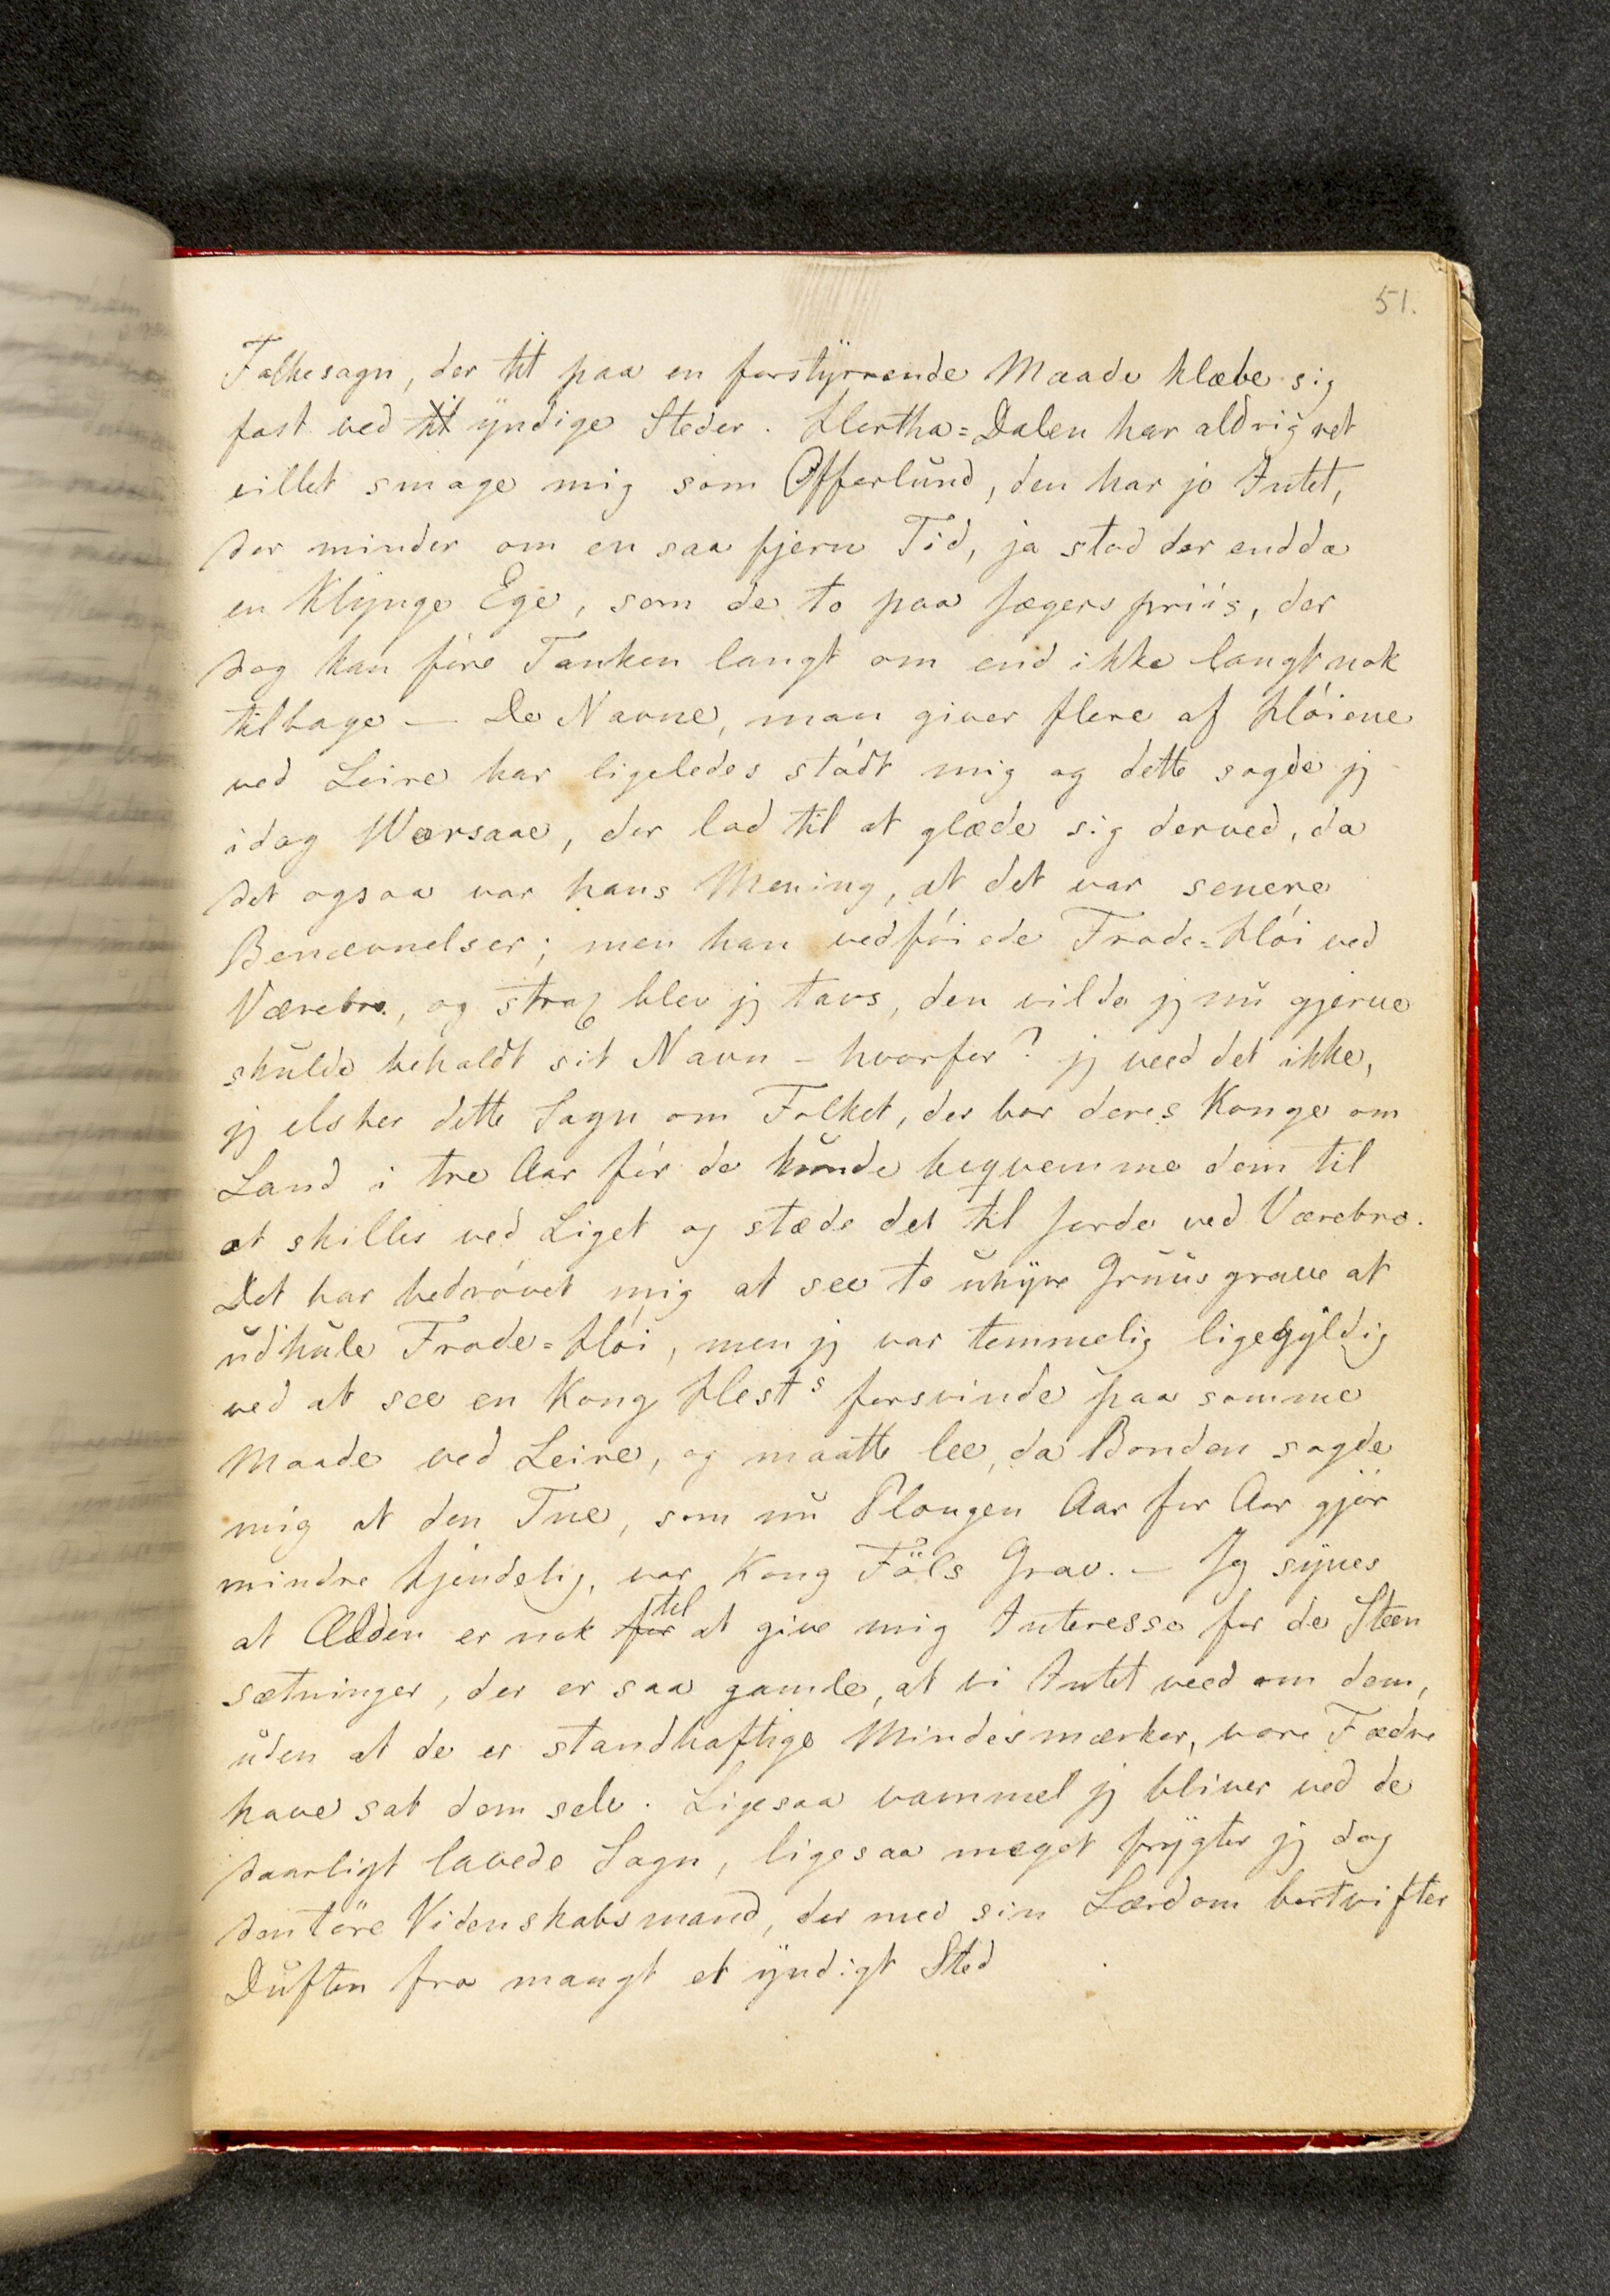 51.
Folkesagn, der tit paa en forstÿrrende Maade klæbe sig
fast ved tit ÿndige Steder. Hertha=Dalen har aldrig ret
villet smage mig som Offerlund, den har jo Intet,
der minder om en saa fjern Tid, ja stod der endda
en Klÿnge Ege, som de to paa Jægerspriis, der
dog kan føre Tanken langt om end ikke langt nok
tilbage — De Navne, man giver flere af Høiene
ved Leire har ligeledes stødt mig og dette sagde jg
idag Worsaae, der lod til at glæde sig derved, da
det ogsaa var hans Mening, at det var senere
Benævnelser; men han vedføiede Frode=Høi ved
Værebro, og strax blev jg tavs, den vilde jg nu gjerne
skulde beholdt sit Navn – hvorfor? jg veed det ikke,
jg elsker dette Sagn om Folket, der bar deres Konge om
Land i tre Aar før de kunde beqvemme dem til
at skilles ved Liget og stæde det til Jorde ved Værebro.
Det har bedrøvet mig at see to uhÿre Gruusgrave at
udhule Frode=Høi, men jg var temmelig ligegÿldig
ved at see en Kong Hests forsvinde paa samme
Maade ved Leire, og maatte lee, da Bonden sagde
mig at den Tue, som nu Plougen Aar for Aar gjør
mindre kjendelig, var Kong Föls Grav. – Jg sÿnes
at Ælden er nok for til at give mig Interesse for de Steen
sætninger, der er saa gamle, at vi Intet veed om dem,
uden at de er standhaftige Mindesmærker, vore Fædre
have sat dem selv. Ligesaa vammel jg bliver ved de
daarligt lavede Sagn, ligesaa meget frÿgter jg dog
den töre Videnskabsmand, der med sin Lærdom bortvifter
Duften fra mangt et ÿndigt Sted